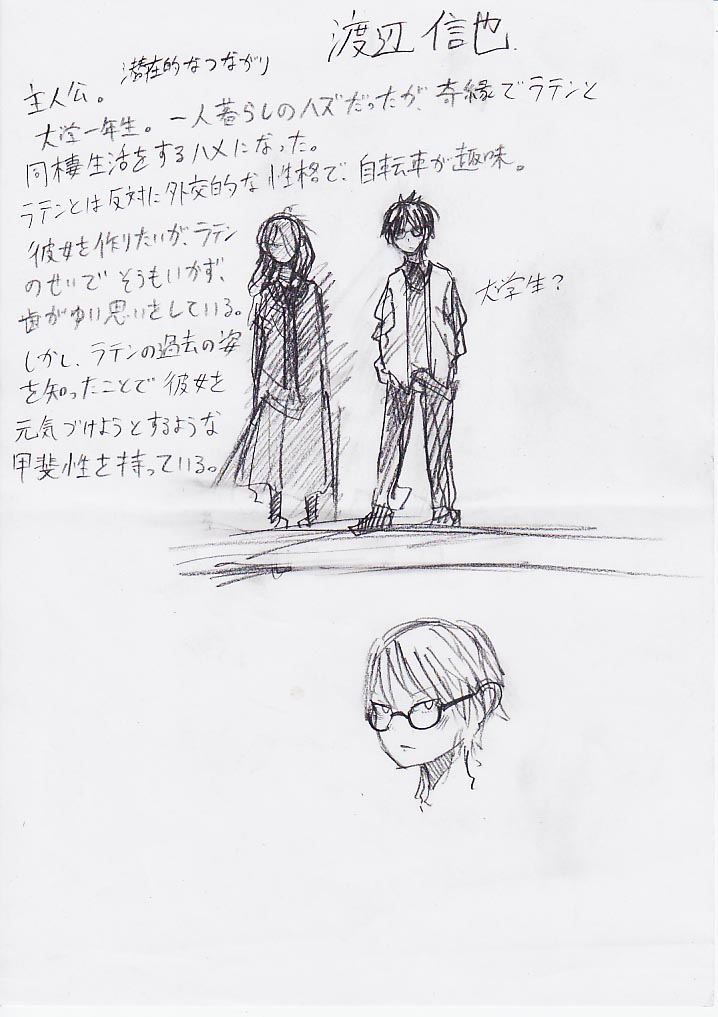 渡辺 信也.
潜在的なつながり
主人公。
大学一年生。一人暮らしのハズだったが、奇縁でラテンと
同棲生活をするハメになった。
ラテンとは反対に外交的な性格で、自転車が趣味。
彼女を作りたいが、ラテン
のせいでそうもいかず、
歯がゆい思いをしている。
しかし、ラテンの過去の姿
を知ったことで彼女を
元気づけようとするような
甲斐性を持っている。
大学生?